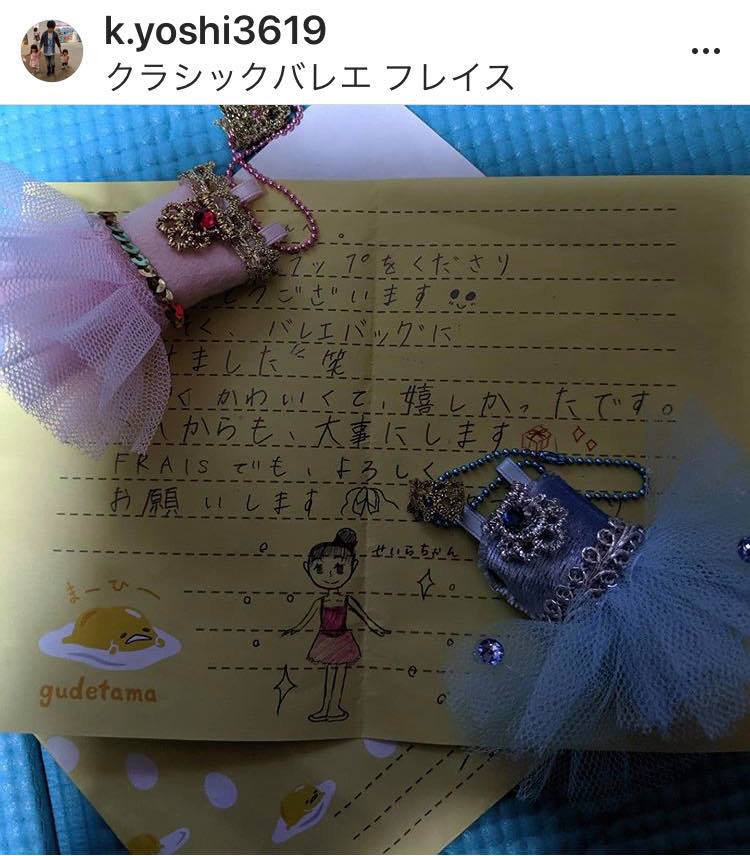 k.yoshi3619
クラシックバレエ フレイス
ラップをくださり
ございます
く、バレエバッグに
ました 笑
くかわいくて、嬉しかったです。
からも、大事にします
FRAISでも、よろしく
お願いします
せいらちゃん
まーひー
gudetama